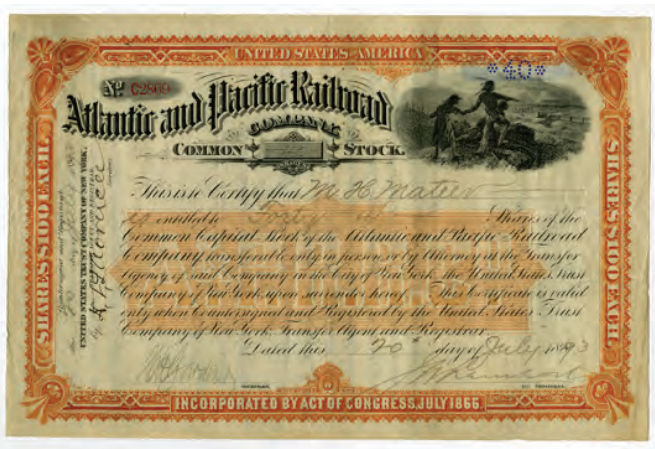 UNITED STATES AMERICA
*40*
No. C2809
Atlantic and Pacific Railroad
COMPANY.
COMMON STOCK.
SHARES $100 EACH.
SHARES $100 EACH.
UNITED STATES TRUST COMPANY OF NEW YORK,
Countersigned and Registered
This is to Certify that M H Mateer
is entitled to Forty Shares of the
Common Capital Stock of the Atlantic and Pacific Railroad
Company, transferable only in person or by Attorney at the Transfer
Agency of said Company in the City of New York, the United States Trust
Company of New York, upon surrender hereof. This Certificate is valid
only when Countersigned and Registered by the United States Trust
Company of New York, Transfer Agent and Registrar.
Dated this 20th day of July 1893
INCORPORATED BY ACT OF CONGRESS, JULY 1866.